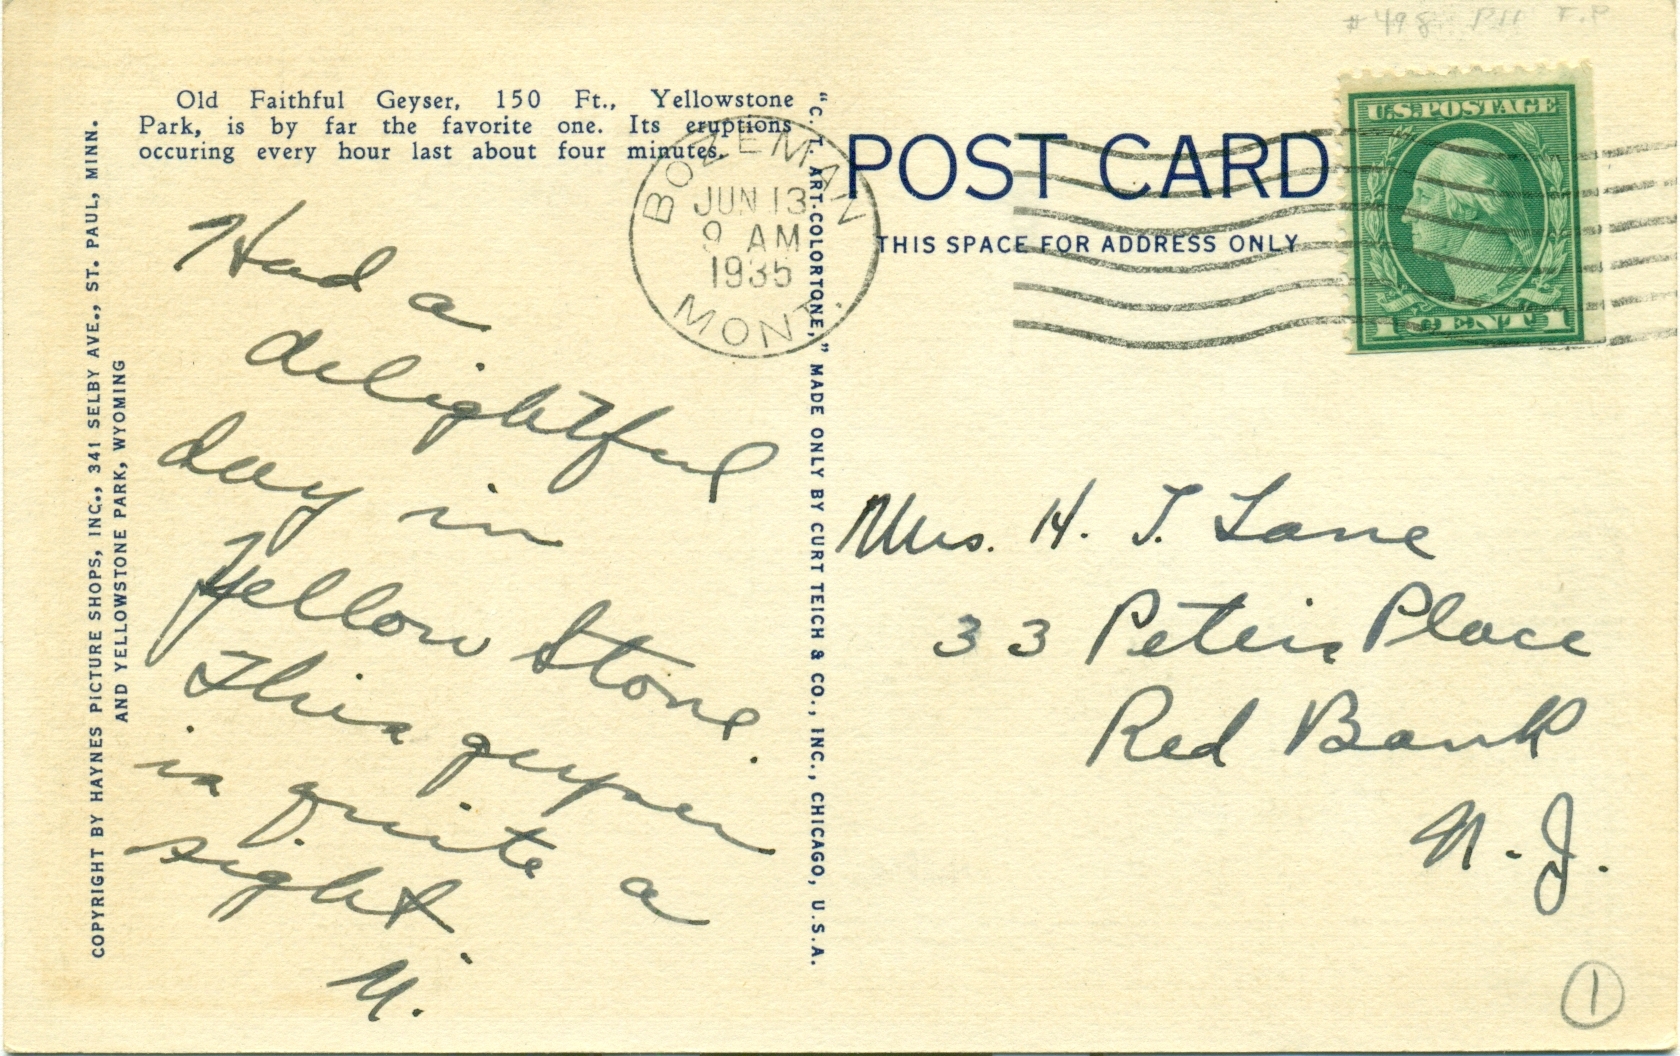 #498
Old Faithful Geyser, 150 Ft., Yellowstone
Park, is by far the favorite one. Its eruptions
occuring every hour last about four minutes.
COPYRIGHT BY HAYNES PICTURE SHOPS, INC., 341 SELBY AVE., ST. PAUL, MINN.
AND YELLOWSTONE PARK, WYOMING
Had a
delightful
day in
Yellow Stone.
This geyser
is quite a
sight.
M.
BOZEMAN
JUN 13
9 AM
1935
MONT.
"C. T. ART-COLORTONE," MADE ONLY BY CURT TEICH & CO., INC., CHICAGO, U.S.A.
POST CARD
THIS SPACE FOR ADDRESS ONLY
U.S. POSTAGE
1 CENT 1
Mrs. H. T. Lane
33 Peters Place
Red Bank
N. J.
1